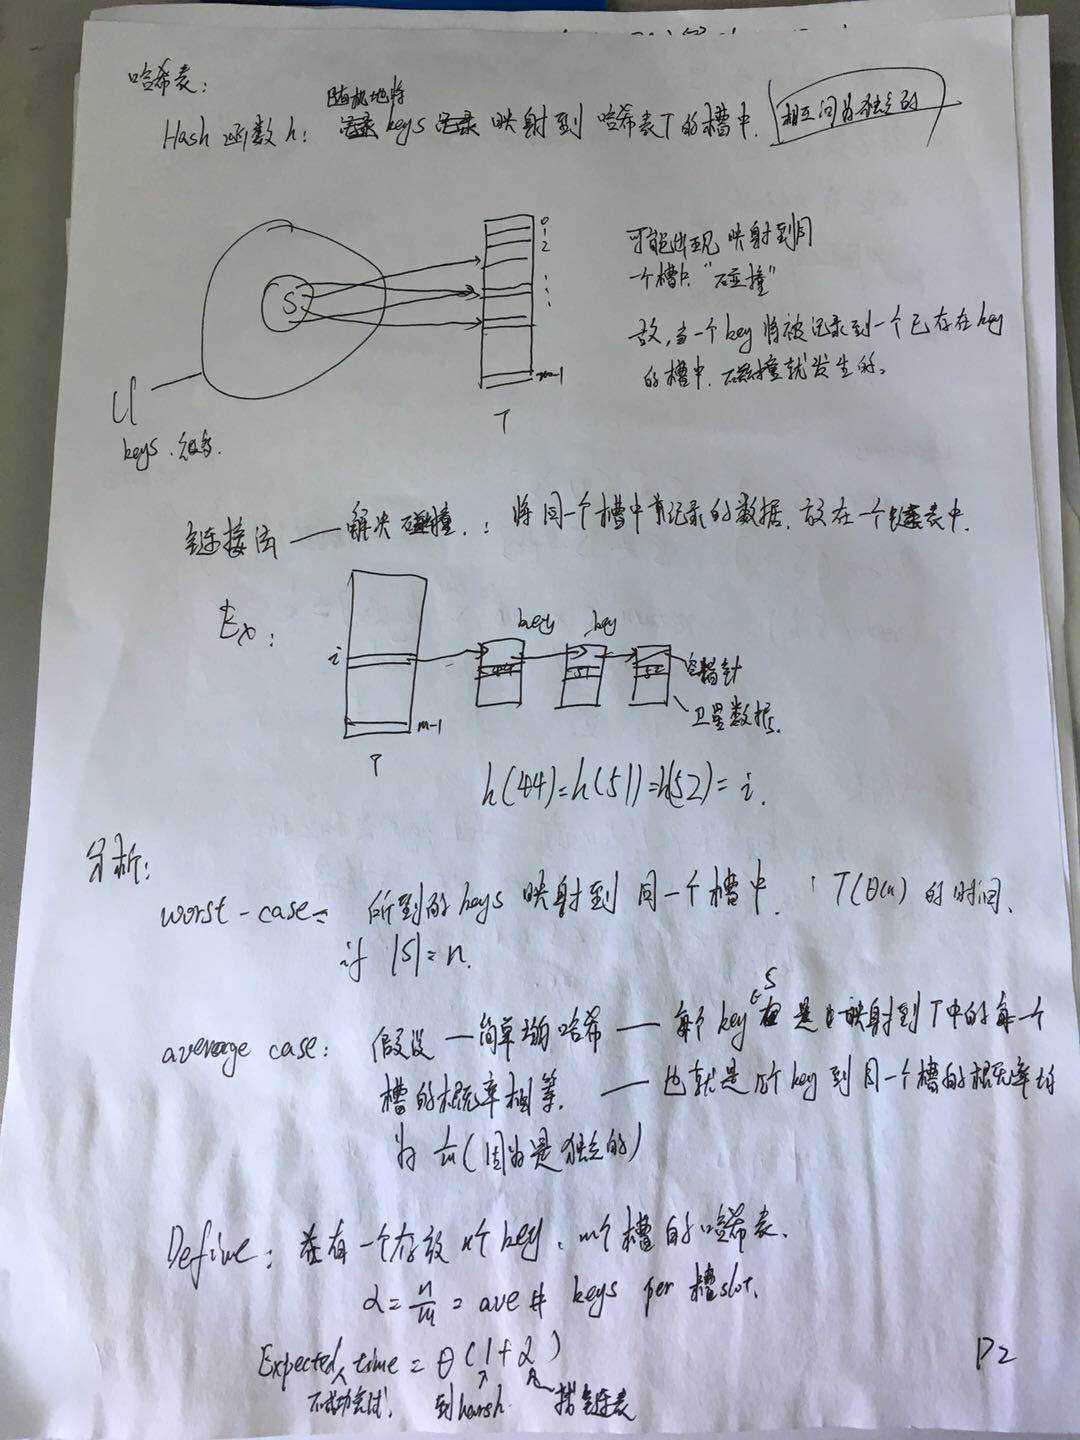 哈希表:
随机地将
Hash 函数 h: keys 映射到 哈希表T的槽中. 相互间为独立的
0
1
2
可能出现 映射到同
一个槽中 "碰撞"
S
故,当一个key将被记录到一个已存在key
的槽中,碰撞就发生的。
m-1
U
T
keys
链接法 — 解决碰撞.: 将同一个槽中有记录的数据,放在一个链表中.
Ex:
key key
i 44 51 52 空指针
m-1 卫星数据
T
h(44)=h(51)=h(52)=i.
分析:
worst-case: 所到的keys 映射到同一个槽中. T(θ(n)) 的时间.
if |S|=n.
average case: 假设—简单均匀哈希—每个key∈S 是映射到T中的每一个
槽的概率相等. — 也就是 key到同一个槽的概率均
为 1/m (因为是独立的)
Define: 在有一个存放n个key, m个槽的哈希表.
α = n/m = ave # keys per 槽slot.
Expected time = θ(1+α)
不成功 到harsh 找链表
P2